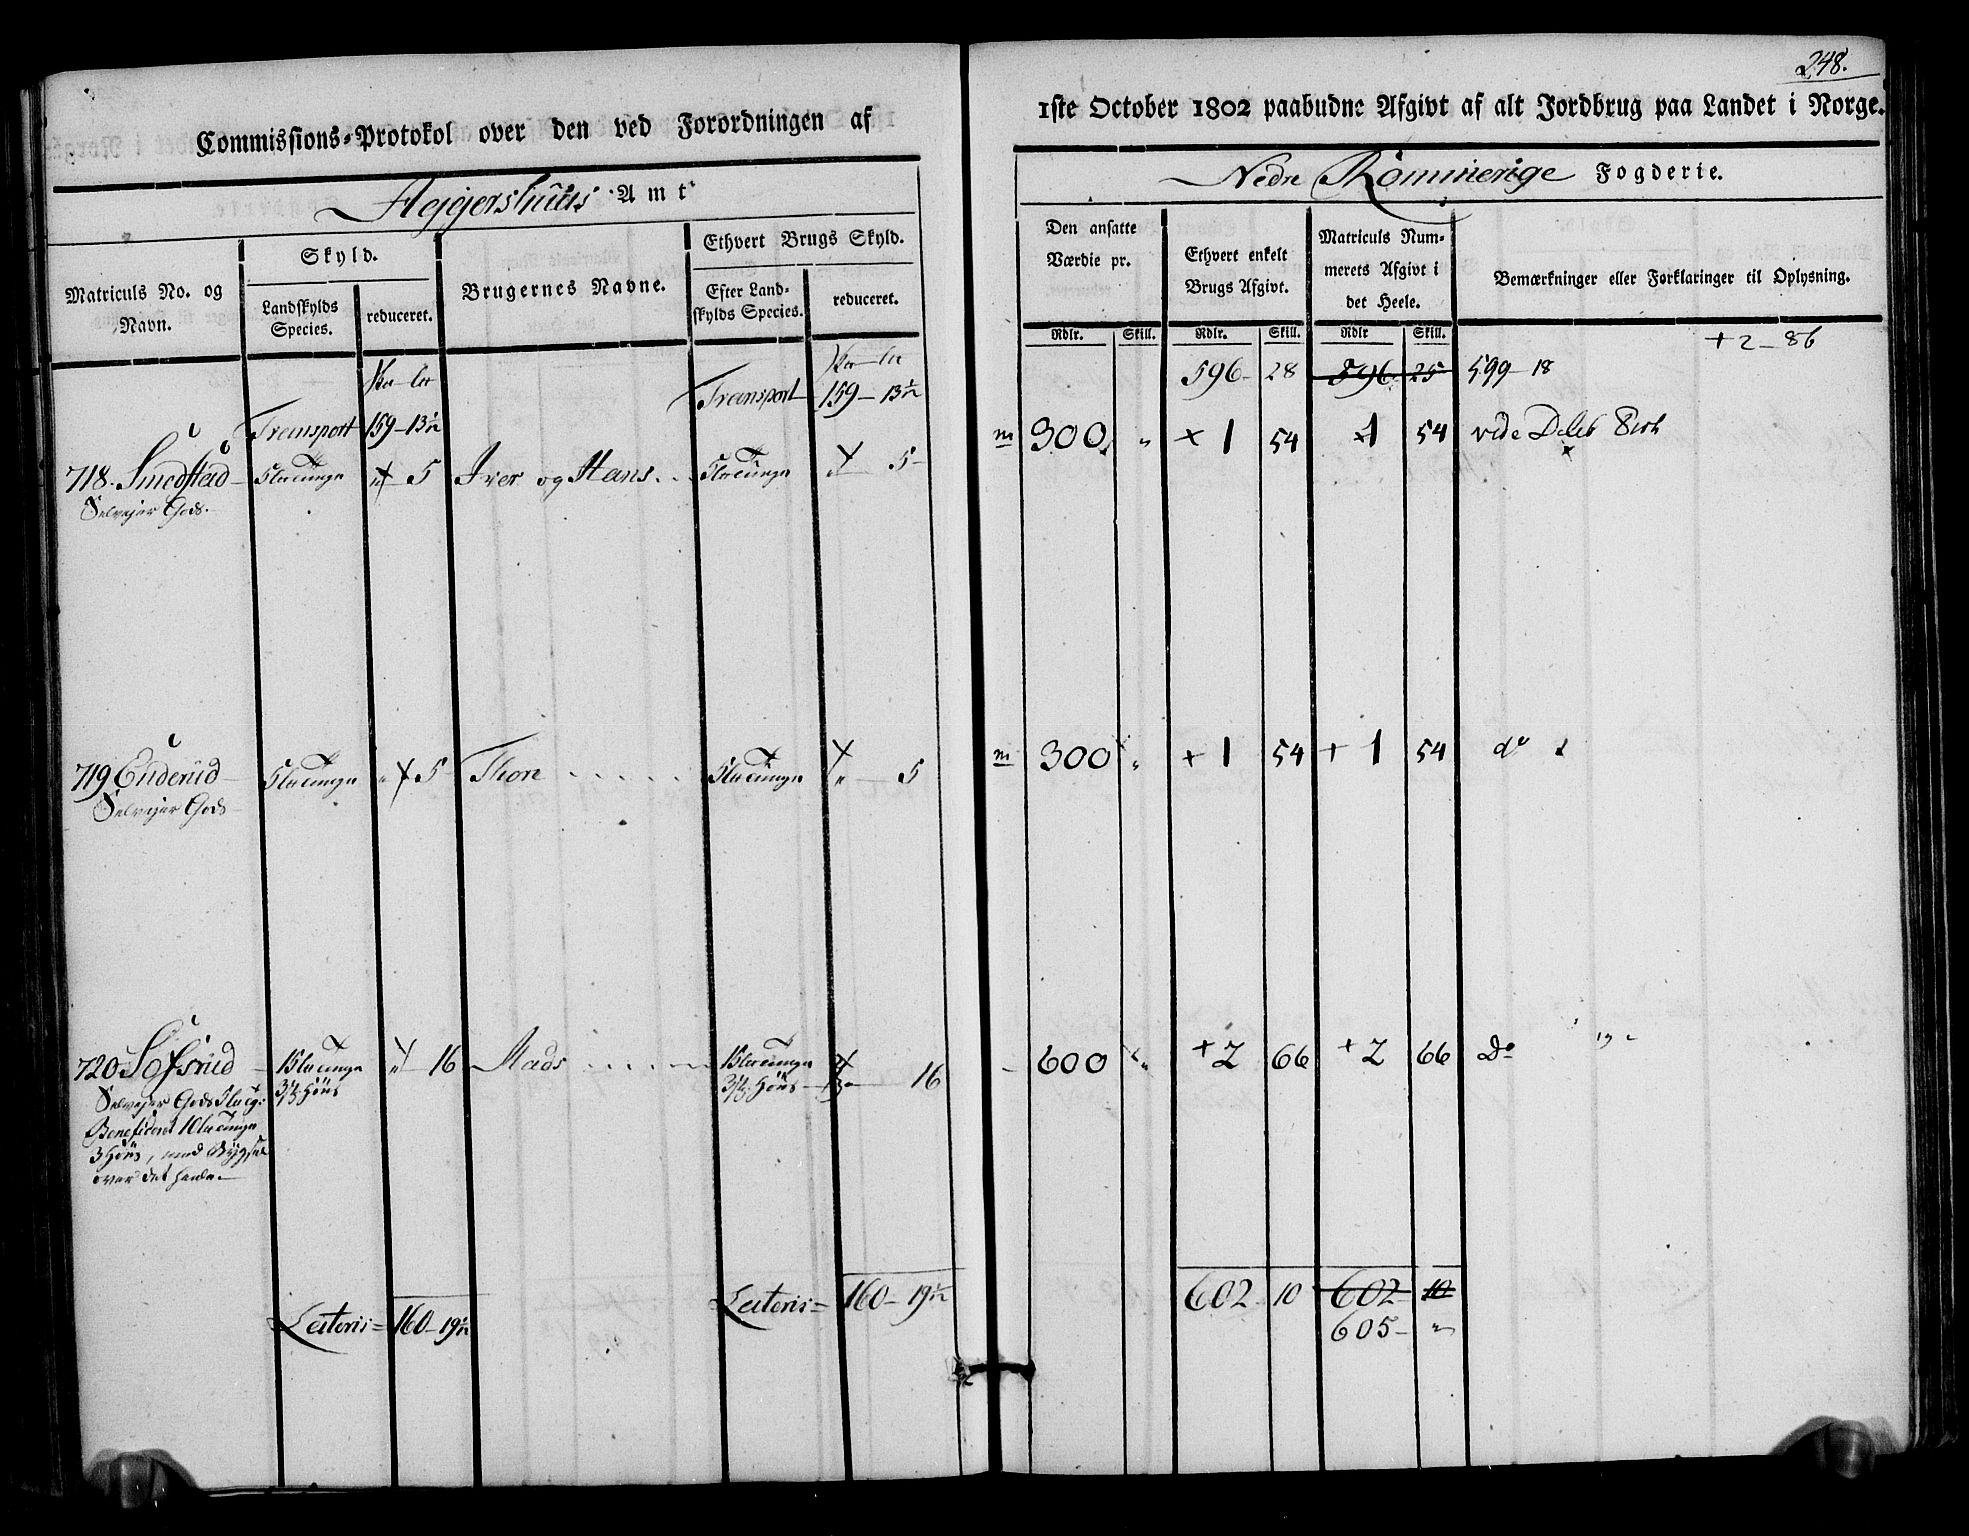 248.
Commissions-Protokol over den ved Forordningen af
1ste October 1802 paabudne Afgivt af alt Jordbrug paa Landet i Norge.
Aggershuus Amt
Nedre Rommerige Fogderie.
Matriculs No. og Navn.
Skyld.
Landskylds Species.
reduceret.
Brugernes Navne.
Ethvert Brugs Skyld.
Efter Landskylds Species.
reduceret.
Den ansatte Værdie pr.
Ethvert enkelt Brugs Afgivt.
Matriculs Nummerets Afgivt i det Heele.
Bemærkninger eller Forklaringer til Oplysning.
Rdlr. Skill. Rdlr. Skill. Rdlr Skill.
+ 2 - 86
Transport 159 - 13½ Transport 159 - 13½ 596 - 28 596 25 599 - 18
718. Smedstad 5 Iver og Hans 5 300 " + 1 54 1 54 vide
Selvejer Gods.
719 Enderud 5 Thore 5 300 " + 1 54 + 1 54 do
Selvejer Gods
720 Sofsrud 16 Mads 16 600 " + 2 66 + 2 66 Do
Selvejer Gods
Beneficeret
3 Høns, med Bygsel
over det heele.
Lateris = 160 - 19½ Lateris = 160 - 19½ 602 10 602 10
605 - "